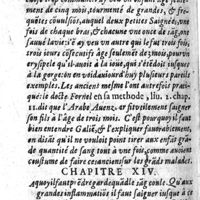 ment de cinq mois, tourmenté de grandes, & fré-
quẽtes cõuulsiõs, auquel deux petites Saignées, vne
fois de chaque bras, & chacune vne once de sãg, ont
sauué la vie: & à vn autre qui luy fut trois fois,
trois iours cõsecutifs âgé seulemẽt de
rysypelle qu'il auoit à la
à la gorge: on void auiourd'huy plusieurs pareils
exemples. Les anciens mesme l'ont autrefois prati-
qué: le docte Forrel en sa methode, liu. 2. chap.
11. dit que l'Arabe Auenz. er fit vtilement saigner
son fils à l'âge de trois mois. C'est pourquoy il faut
bien entendre Galiẽ, & l'expliquer fauorablement,
en disant qu'il ne vouloit tirer aux enfãs vne grã-
de quantité de sang tout à vne fois, comme
coustume de faire ces anciens ur les grãds malades.
CHAPITRE XIV.
A quoy il faut prẽdre garde quãd le sãg coule. Qu'aux
grandes inflammatiõs il faut saigner iusque à ce